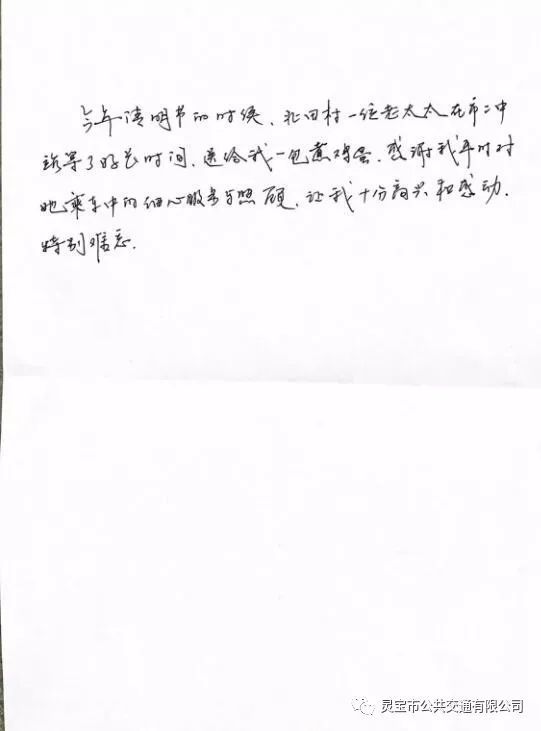 今年清明节的时候、北田村一位老太太在市二中
等了好长时间、送给我一包煮鸡蛋、感谢我平时对
她乘车中的细心服务与照顾、让我十分高兴和感动.
特别难忘.
灵宝市公共交通有限公司